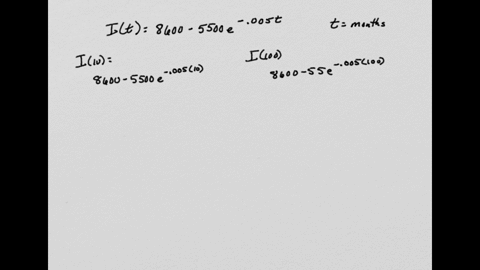 I(t) = 8400 - 5500e^-.005t t = months
I(10) = I(100)
8400 - 5500e^-.005(10) 8600 - 55e^-.005(100)